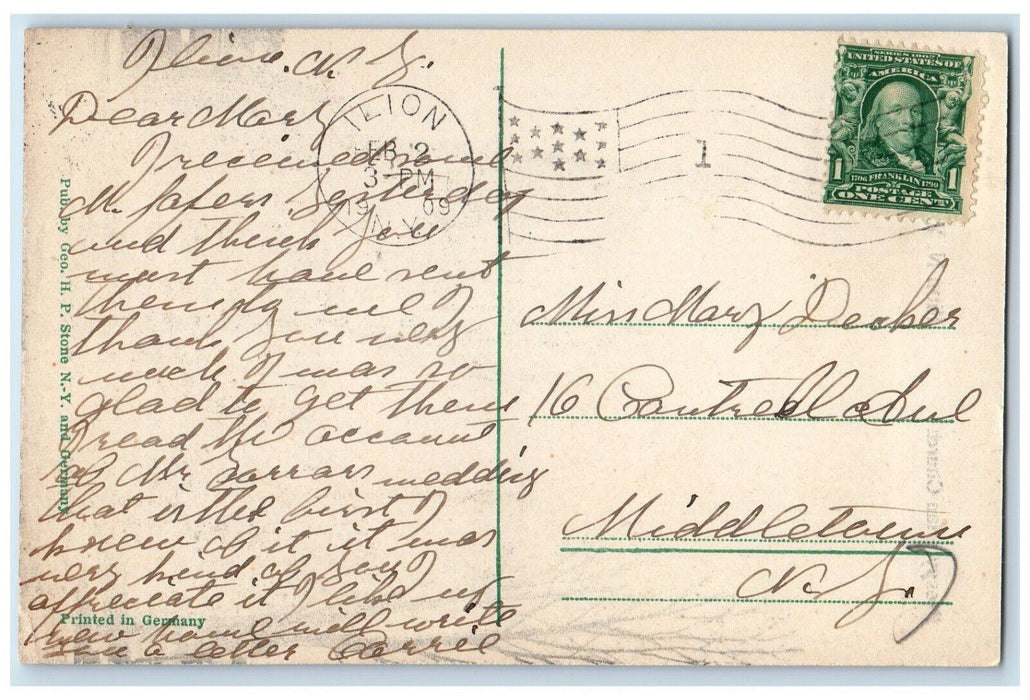 Ilion, N. Y.
Dear Mary
I received some
M. papers yesterday
and think you
must have sent
them to me I
thank you very
much I was so
glad to get them
I read the account
of Mr wedding
that is the first I
knew of it it was
very kind of you I
appreciate it I like my
new home will write
you a letter Carrie
Pub. by Geo. H. P. Stone N.-Y. and Germany
Printed in Germany
ILION
FEB 2
3-PM
1909
N.Y.
1
SERIES 1902
UNITED STATES OF
AMERICA
1706 FRANKLIN 1790
1 POSTAGE 1
ONE CENT
Miss Mary Decker
16 Cantrell Ave
Middletown
N. Y.